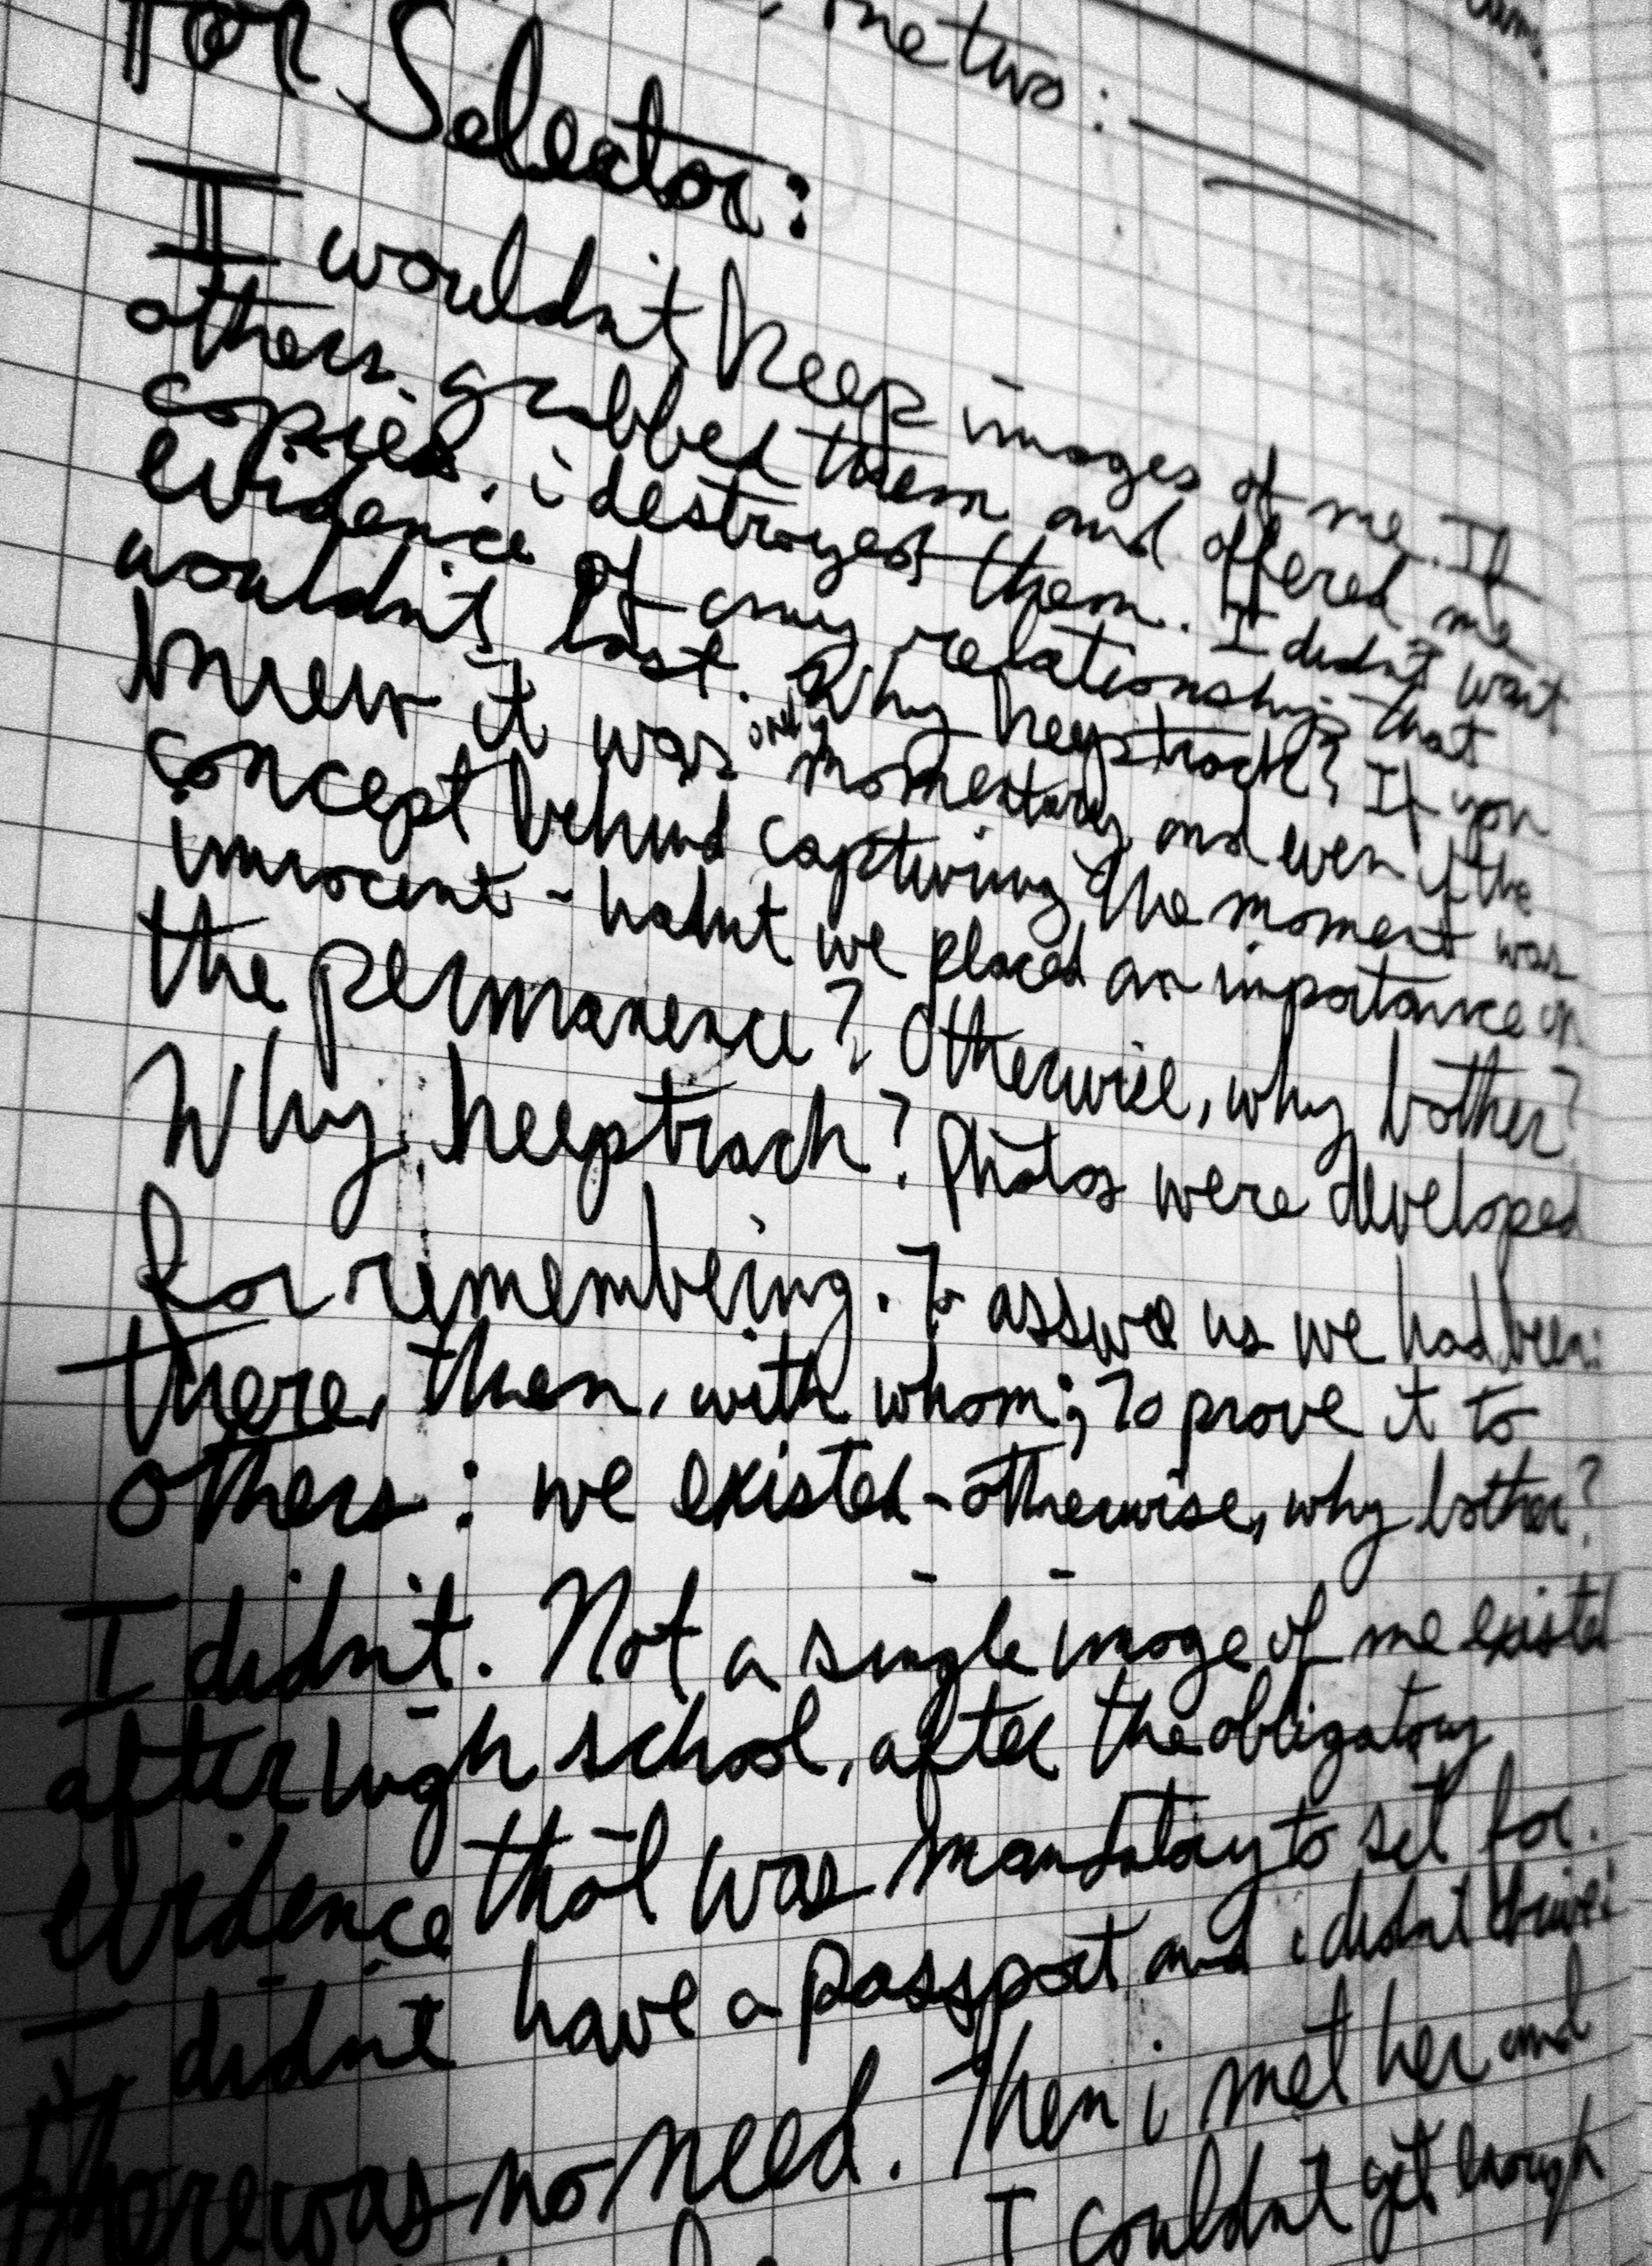 me two:
For Selector:
I wouldn't keep images of me. If
others grabbed them and offered me
copies, i destroyed them. I didn't want
evidence of any relationship that
wouldn't last. Why keep track? If you
knew it was only momentary and even if the
concept behind capturing the moment was
innocent - hadnt we placed an importance on
the permanence? Otherwise, why bother?
Why keep track? Photos were developed
for remembeing. To assure us we had been:
there, then, with whom; To prove it to
others: we existed - otherwise, why bother?
I didn't. Not a single image of me existed
after high school, after the obligatory
evidence that was mandatory to sit for.
I didnt have a passport and i didnt drive:
there was no need. Then i met her and
I couldnt get enough